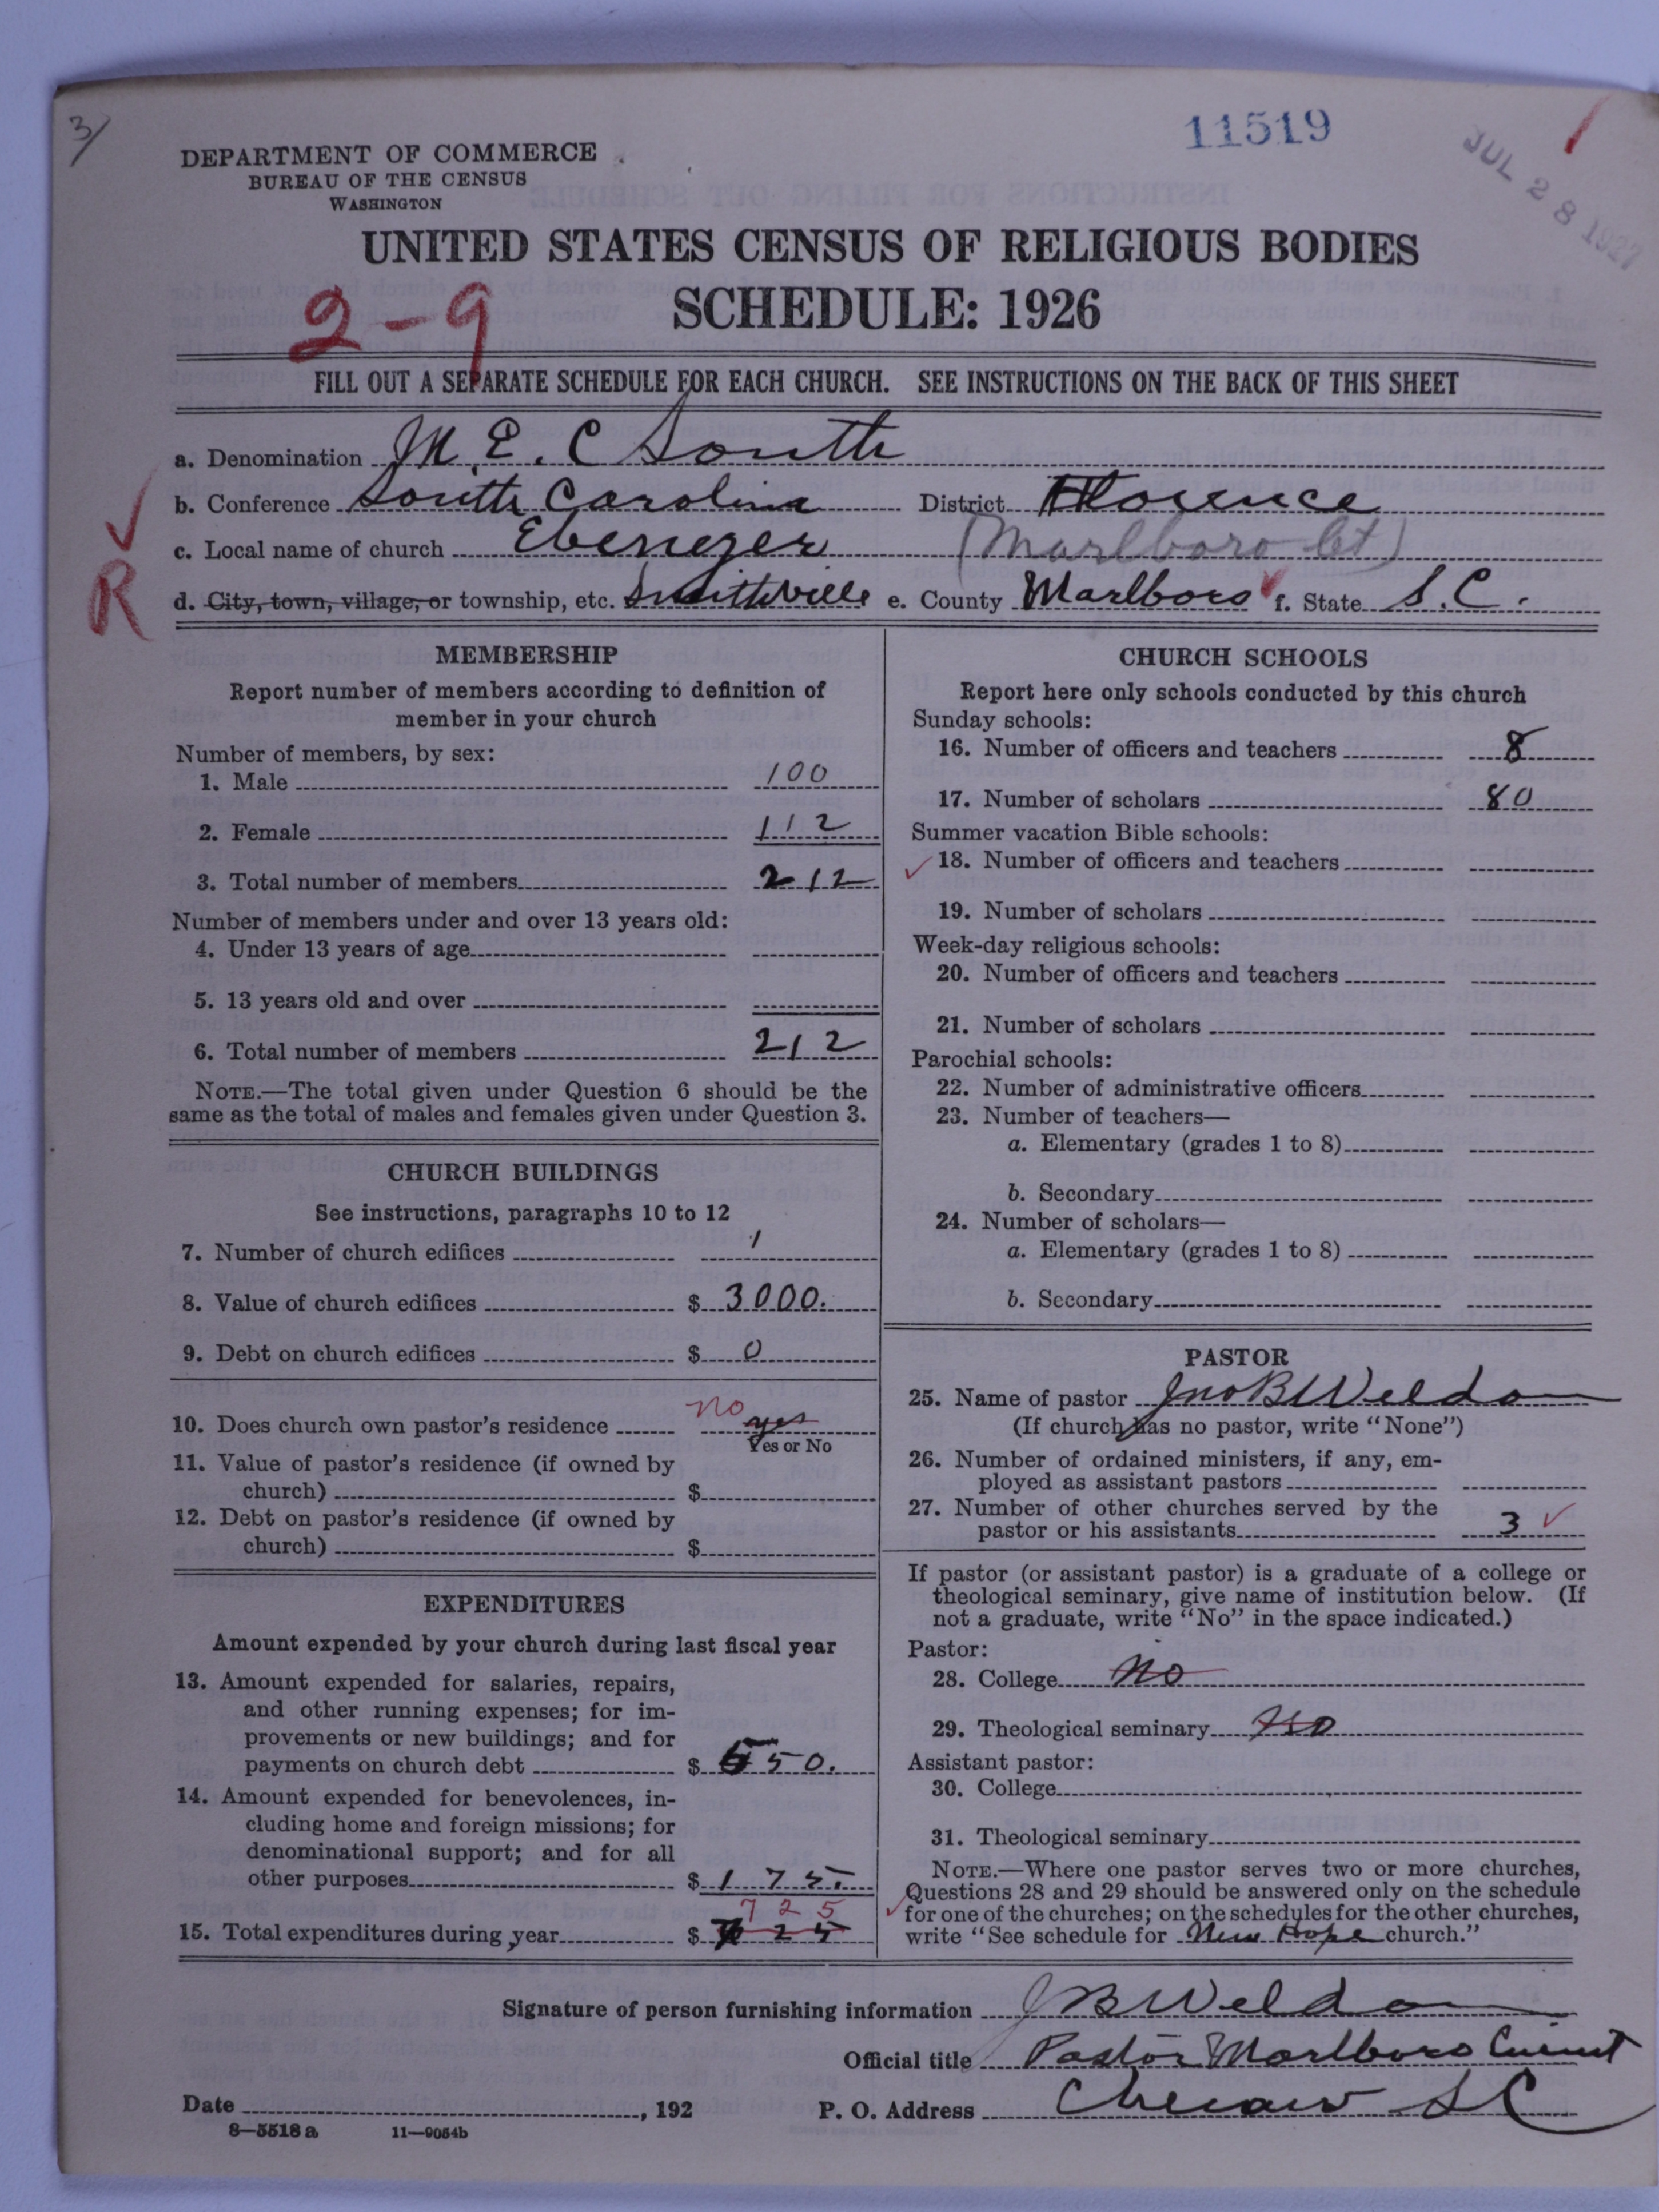 3/
11519
JUL 28 1927
DEPARTMENT OF COMMERCE
BUREAU OF THE CENSUS
WASHINGTON
UNITED STATES CENSUS OF RELIGIOUS BODIES
SCHEDULE: 1926
2-9
FILL OUT A SEPARATE SCHEDULE FOR EACH CHURCH. SEE INSTRUCTIONS ON THE BACK OF THIS SHEET
a. Denomination M. E. C South
b. Conference South Carolina District Florence
c. Local name of church Ebenezer (Marlboro Ct)
R
d. City, town, village, or township, etc. Smithville e. County Marlboro f. State S.C.
MEMBERSHIP
Report number of members according to definition of
member in your church
Number of members, by sex:
1. Male 100
2. Female 112
3. Total number of members 212
Number of members under and over 13 years old:
4. Under 13 years of age
5. 13 years old and over
6. Total number of members 212
NOTE.—The total given under Question 6 should be the
same as the total of males and females given under Question 3.
CHURCH BUILDINGS
See instructions, paragraphs 10 to 12
7. Number of church edifices 1
8. Value of church edifices $ 3000.
9. Debt on church edifices $ 0
10. Does church own pastor's residence no yes
Yes or No
11. Value of pastor's residence (if owned by
church) $
12. Debt on pastor's residence (if owned by
church) $
EXPENDITURES
Amount expended by your church during last fiscal year
13. Amount expended for salaries, repairs,
and other running expenses; for im-
provements or new buildings; and for
payments on church debt $ 550.
14. Amount expended for benevolences, in-
cluding home and foreign missions; for
denominational support; and for all
other purposes $ 175.
725
15. Total expenditures during year $
CHURCH SCHOOLS
Report here only schools conducted by this church
Sunday schools:
16. Number of officers and teachers 8
17. Number of scholars 80
Summer vacation Bible schools:
18. Number of officers and teachers
19. Number of scholars
Week-day religious schools:
20. Number of officers and teachers
21. Number of scholars
Parochial schools:
22. Number of administrative officers
23. Number of teachers—
a. Elementary (grades 1 to 8)
b. Secondary
24. Number of scholars—
a. Elementary (grades 1 to 8)
b. Secondary
PASTOR
25. Name of pastor Jno B Weldon
(If church has no pastor, write "None")
26. Number of ordained ministers, if any, em-
ployed as assistant pastors
27. Number of other churches served by the
pastor or his assistants 3
If pastor (or assistant pastor) is a graduate of a college or
theological seminary, give name of institution below. (If
not a graduate, write "No" in the space indicated.)
Pastor:
28. College No
29. Theological seminary No
Assistant pastor:
30. College
31. Theological seminary
NOTE.—Where one pastor serves two or more churches,
Questions 28 and 29 should be answered only on the schedule
for one of the churches; on the schedules for the other churches,
write "See schedule for New Hope church."
Signature of person furnishing information J B Weldon
Official title Pastor Marlboro Circuit
Date , 192 P. O. Address Cheraw S C
8—5518 a 11—9054b